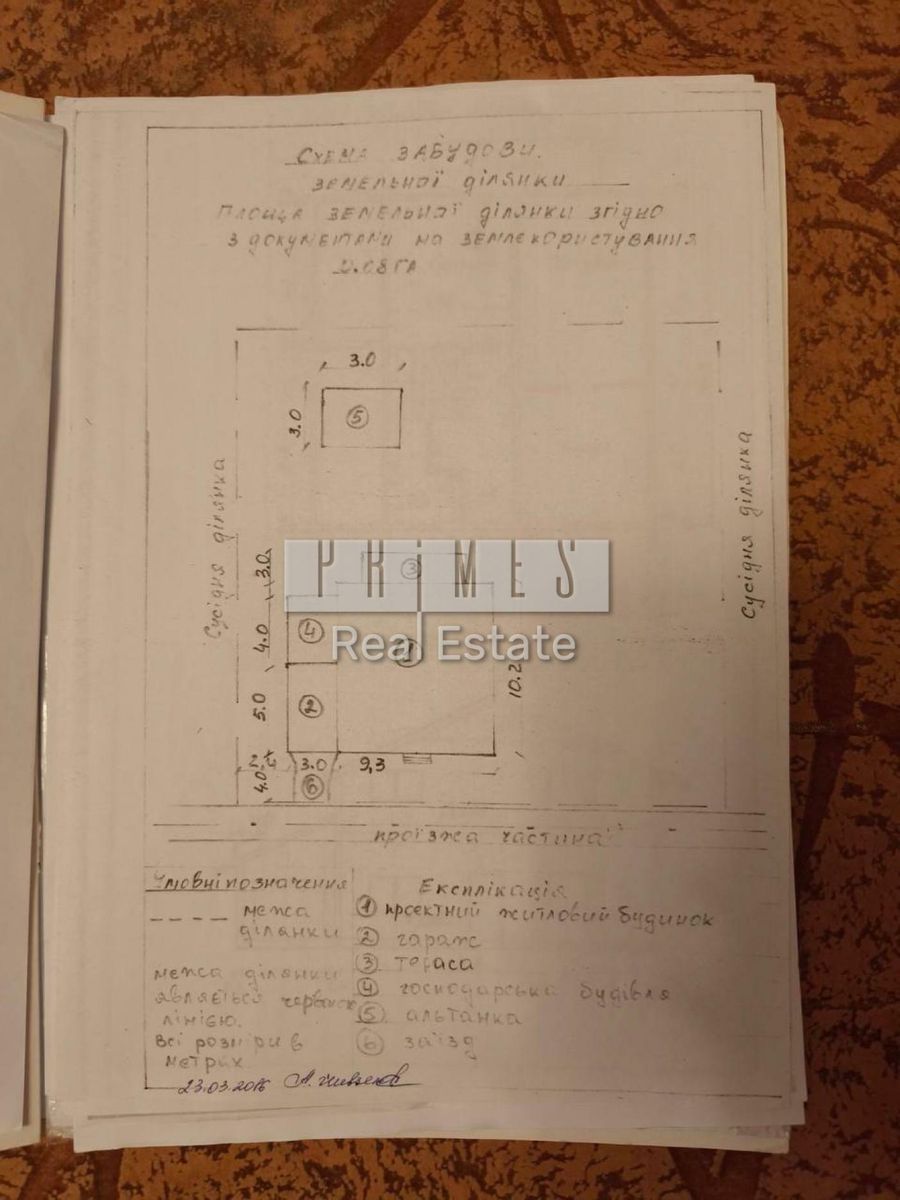 Схема забудови.
земельної ділянки
Площа земельної ділянки згідно
з документами на землекористування
0.08 га
3.0
3.0
5
Сусідня ділянка
Сусідня ділянка
PRiMES
Real Estate
3
3.0
4.0
4
5.0
2
10.2
3.0
9,3
4.0
6
проїзжа частина
Умовні позначення
межа
ділянки
межа ділянки
являється червоною
лінією.
Всі розміри в
метрах
Експлікація
1 проектний житловий будинок
2 гараж
3 тераса
4 господарська будівля
5 альтанка
6 заїзд
23.03.2016